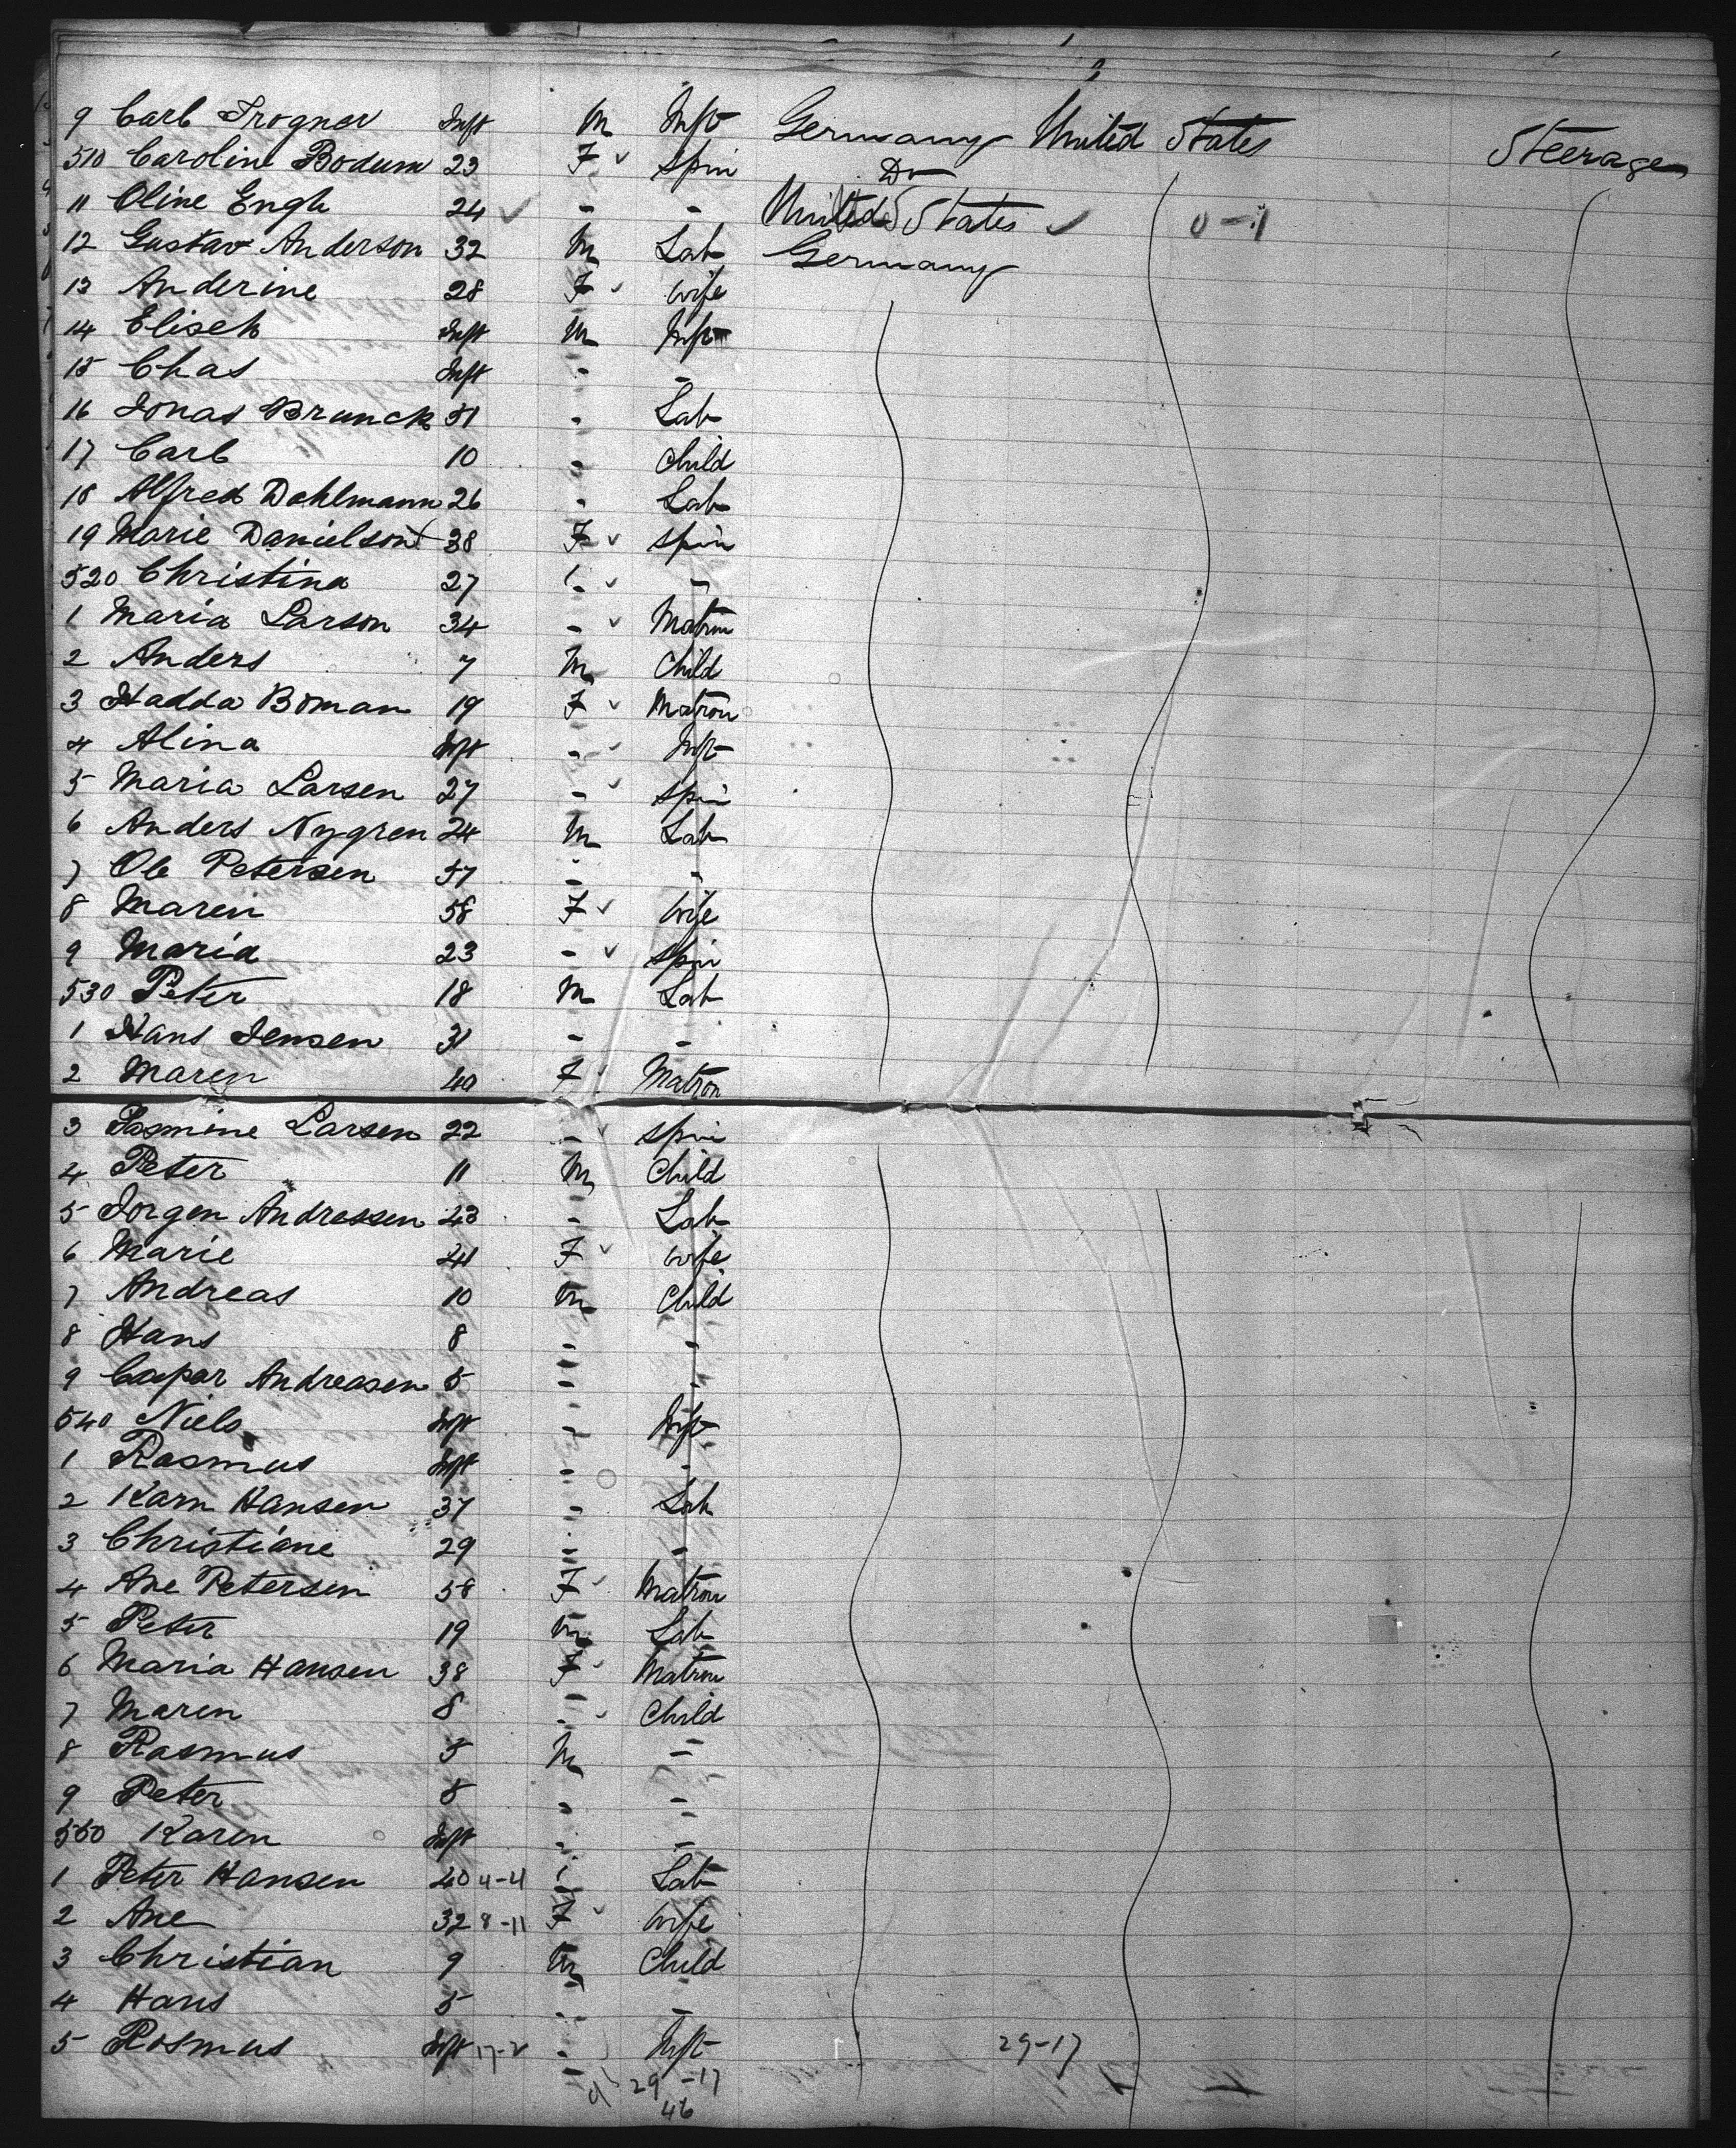 9 Carl Trogner Inft M Inft Germany United States Steerage
510 Caroline Bodum 23 F ✓ Spin Do
11 Oline Engh 24 ✓ - - United States ✓ 0-1
12 Gustav Anderson 32 M Lab Germany
13 Anderine 28 F ✓ Wife
14 Elisek Inft M Inft
15 Chas Inft - -
16 Jonas Brunck 51 - Lab
17 Carl 10 - Child
18 Alfred Dahlmann 26 - Lab
19 Marie Danielson 38 F ✓ Spin
520 Christina 27 - ✓ -
1 Maria Larson 34 - ✓ Matron
2 Anders 7 M Child
3 Hadda Boman 19 F ✓ Matron
4 Alina Inft - ✓ Inft
5 Maria Larsen 27 - ✓ Spin
6 Anders Nygren 24 M Lab
7 Ole Petersen 57 - -
8 Maren 58 F ✓ Wife
9 Maria 23 - ✓ Spin
530 Peter 18 M Lab
1 Hans Jensen 31 - -
2 Maren 40 F ✓ Matron
3 Rasmine Larsen 22 - ✓ Spin
4 Peter 11 M Child
5 Jorgen Andressen 43 - Lab
6 Marie 41 F ✓ Wife
7 Andreas 10 M Child
8 Hans 8 - -
9 Caspar Andreasen 5 - -
540 Niels Inft - Inft
1 Rasmus Inft - -
2 Karn Hansen 37 - Lab
3 Christiane 29 - -
4 Ane Petersen 58 F ✓ Matron
5 Peter 19 M Lab
6 Maria Hansen 38 F ✓ Matron
7 Maren 8 - ✓ Child
8 Rasmus 5 M -
9 Peter 8 - -
550 Karen Inft - -
1 Peter Hansen 40 4-4 - Lab
2 Ane 32 8-11 F ✓ Wife
3 Christian 9 M Child
4 Hans 5 - -
5 Rasmus Inft 17-2 - Inft 29-17
29-17
46